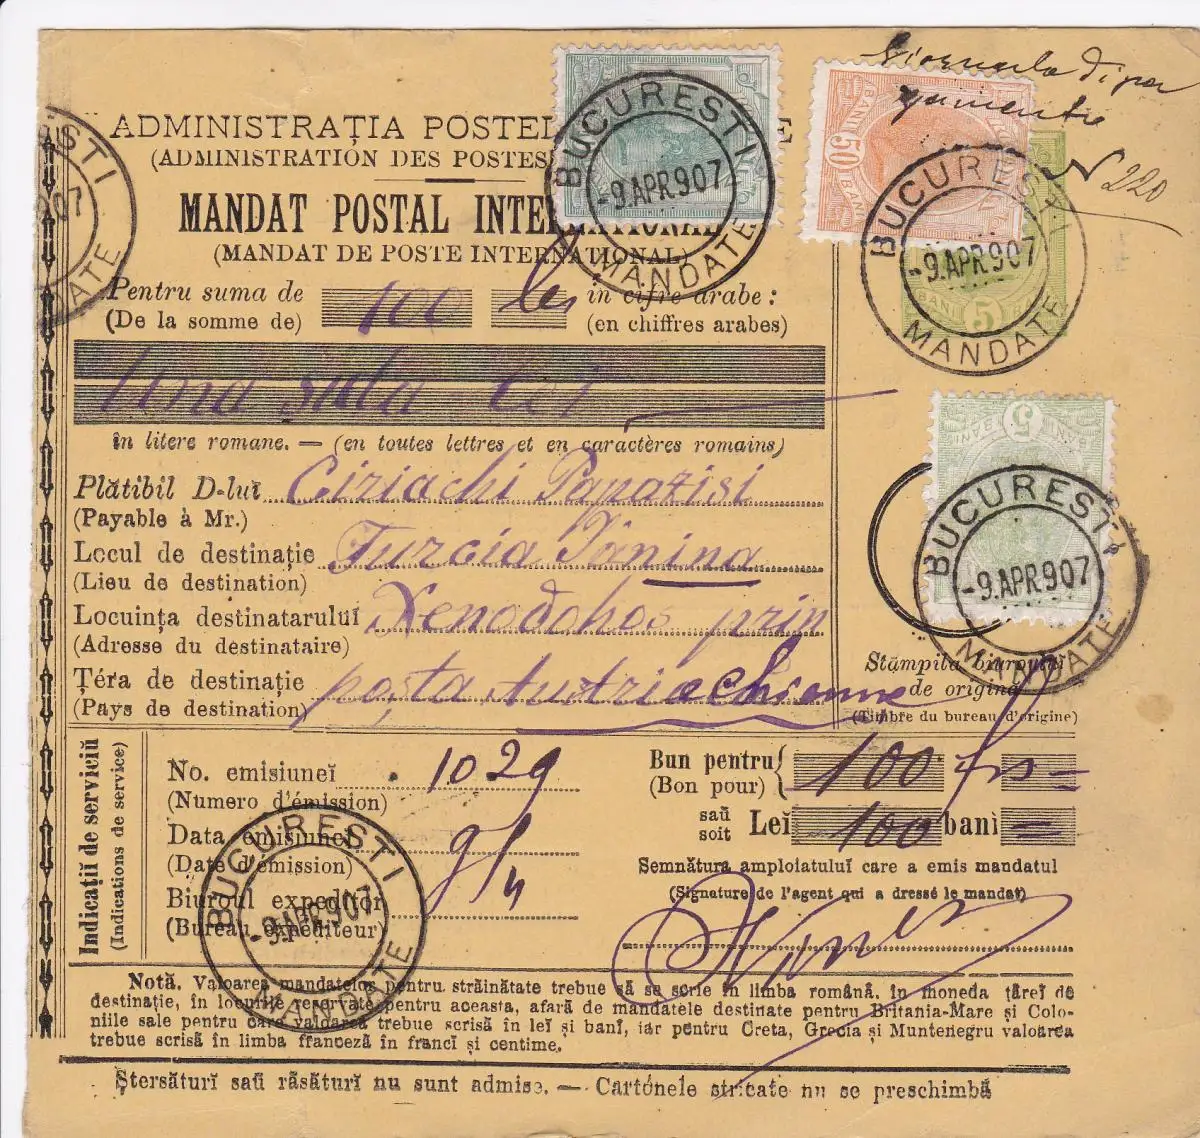 Giornale di pa
gamente
N 220
ADMINISTRAȚIA POSTEL
(ADMINISTRATION DES POSTES
MANDAT POSTAL INTERNATIONAL
(MANDAT DE POSTE INTERNATIONAL)
BUCURESTI
-9.APR.907
MANDATE
50 BANI 50 BANI
BUCURESTI
-9.APR.907
MANDATE
BANI 5 BANI
ESTI
907
DATE
Pentru suma de 100 lei în cifre arabe:
(De la somme de) (en chiffres arabes)
Una suta Lei
în litere romane. — (en toutes lettres et en caractères romains)
Plătibil D-luĭ Ciriachi Panatisi
(Payable à Mr.)
Locul de destinație Turcia Janina
(Lieu de destination)
Locuința destinataruluĭ Xenodohos prin
(Adresse du destinataire)
Țéra de destinație poșta Austriachienne
(Pays de destination)
5 BANI
BUCURESTI
-9.APR.907
MANDATE
Stămpila biuroului
de origină
(Timbre du bureau d'origine)
Indicațiĭ de serviciŭ
(Indications de service)
No. emisiuneĭ 1029
(Numero d'émission)
Data emisiuneĭ 9/4
(Date d'émission)
Biuroul expeditor
(Bureau expéditeur)
BUCURESTI
-9.APR.907
MANDATE
Bun pentru 100 frs —
(Bon pour)
saŭ
soit Leĭ 100 banĭ =
Semnătura amploiatuluĭ care a emis mandatul
(Signature de l'agent qui a dressé le mandat)
Notă. Valoarea mandatelor pentru străinătate trebue să se scrie în limba română, în moneda țărei de
destinație, în locurile reservate pentru aceasta, afară de mandatele destinate pentru Britania-Mare și Colo-
niile sale pentru care valoarea trebue scrisă în leĭ și banĭ, iar pentru Creta, Grecia și Muntenegru valoarea
trebue scrisă în limba franceză în francĭ și centime.
Ștersăturĭ saŭ răsăturĭ nu sunt admise. — Cartónele stricate nu se preschimbă